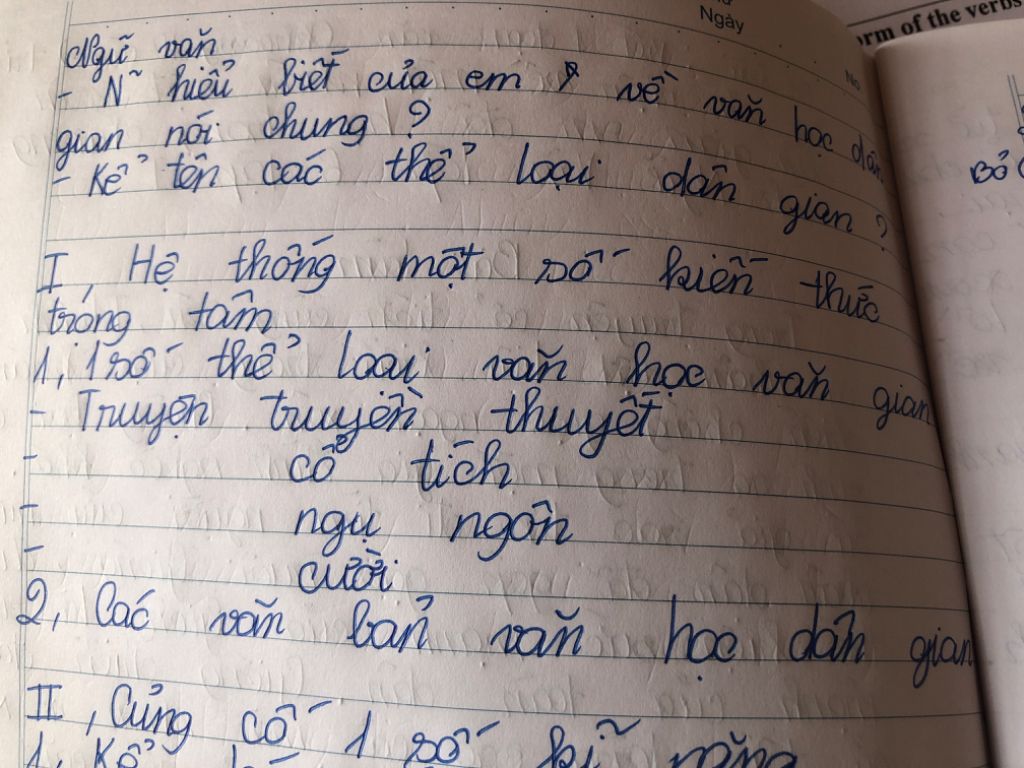 Ngày
No
orm of the verbs
Ngữ văn
- N~ hiểu biết của em về văn học dân
gian nói chung ?
- Kể tên các thể loại dân gian ?
I, Hệ thống một số kiến thức
trọng tâm
1, 1 số thể loại văn học văn gian
- Truyện truyền thuyết
- cổ tích
- ngụ ngôn
- cười
2, Các văn bản văn học dân gian
II, Củng cố 1 số kĩ năng
1, Kể